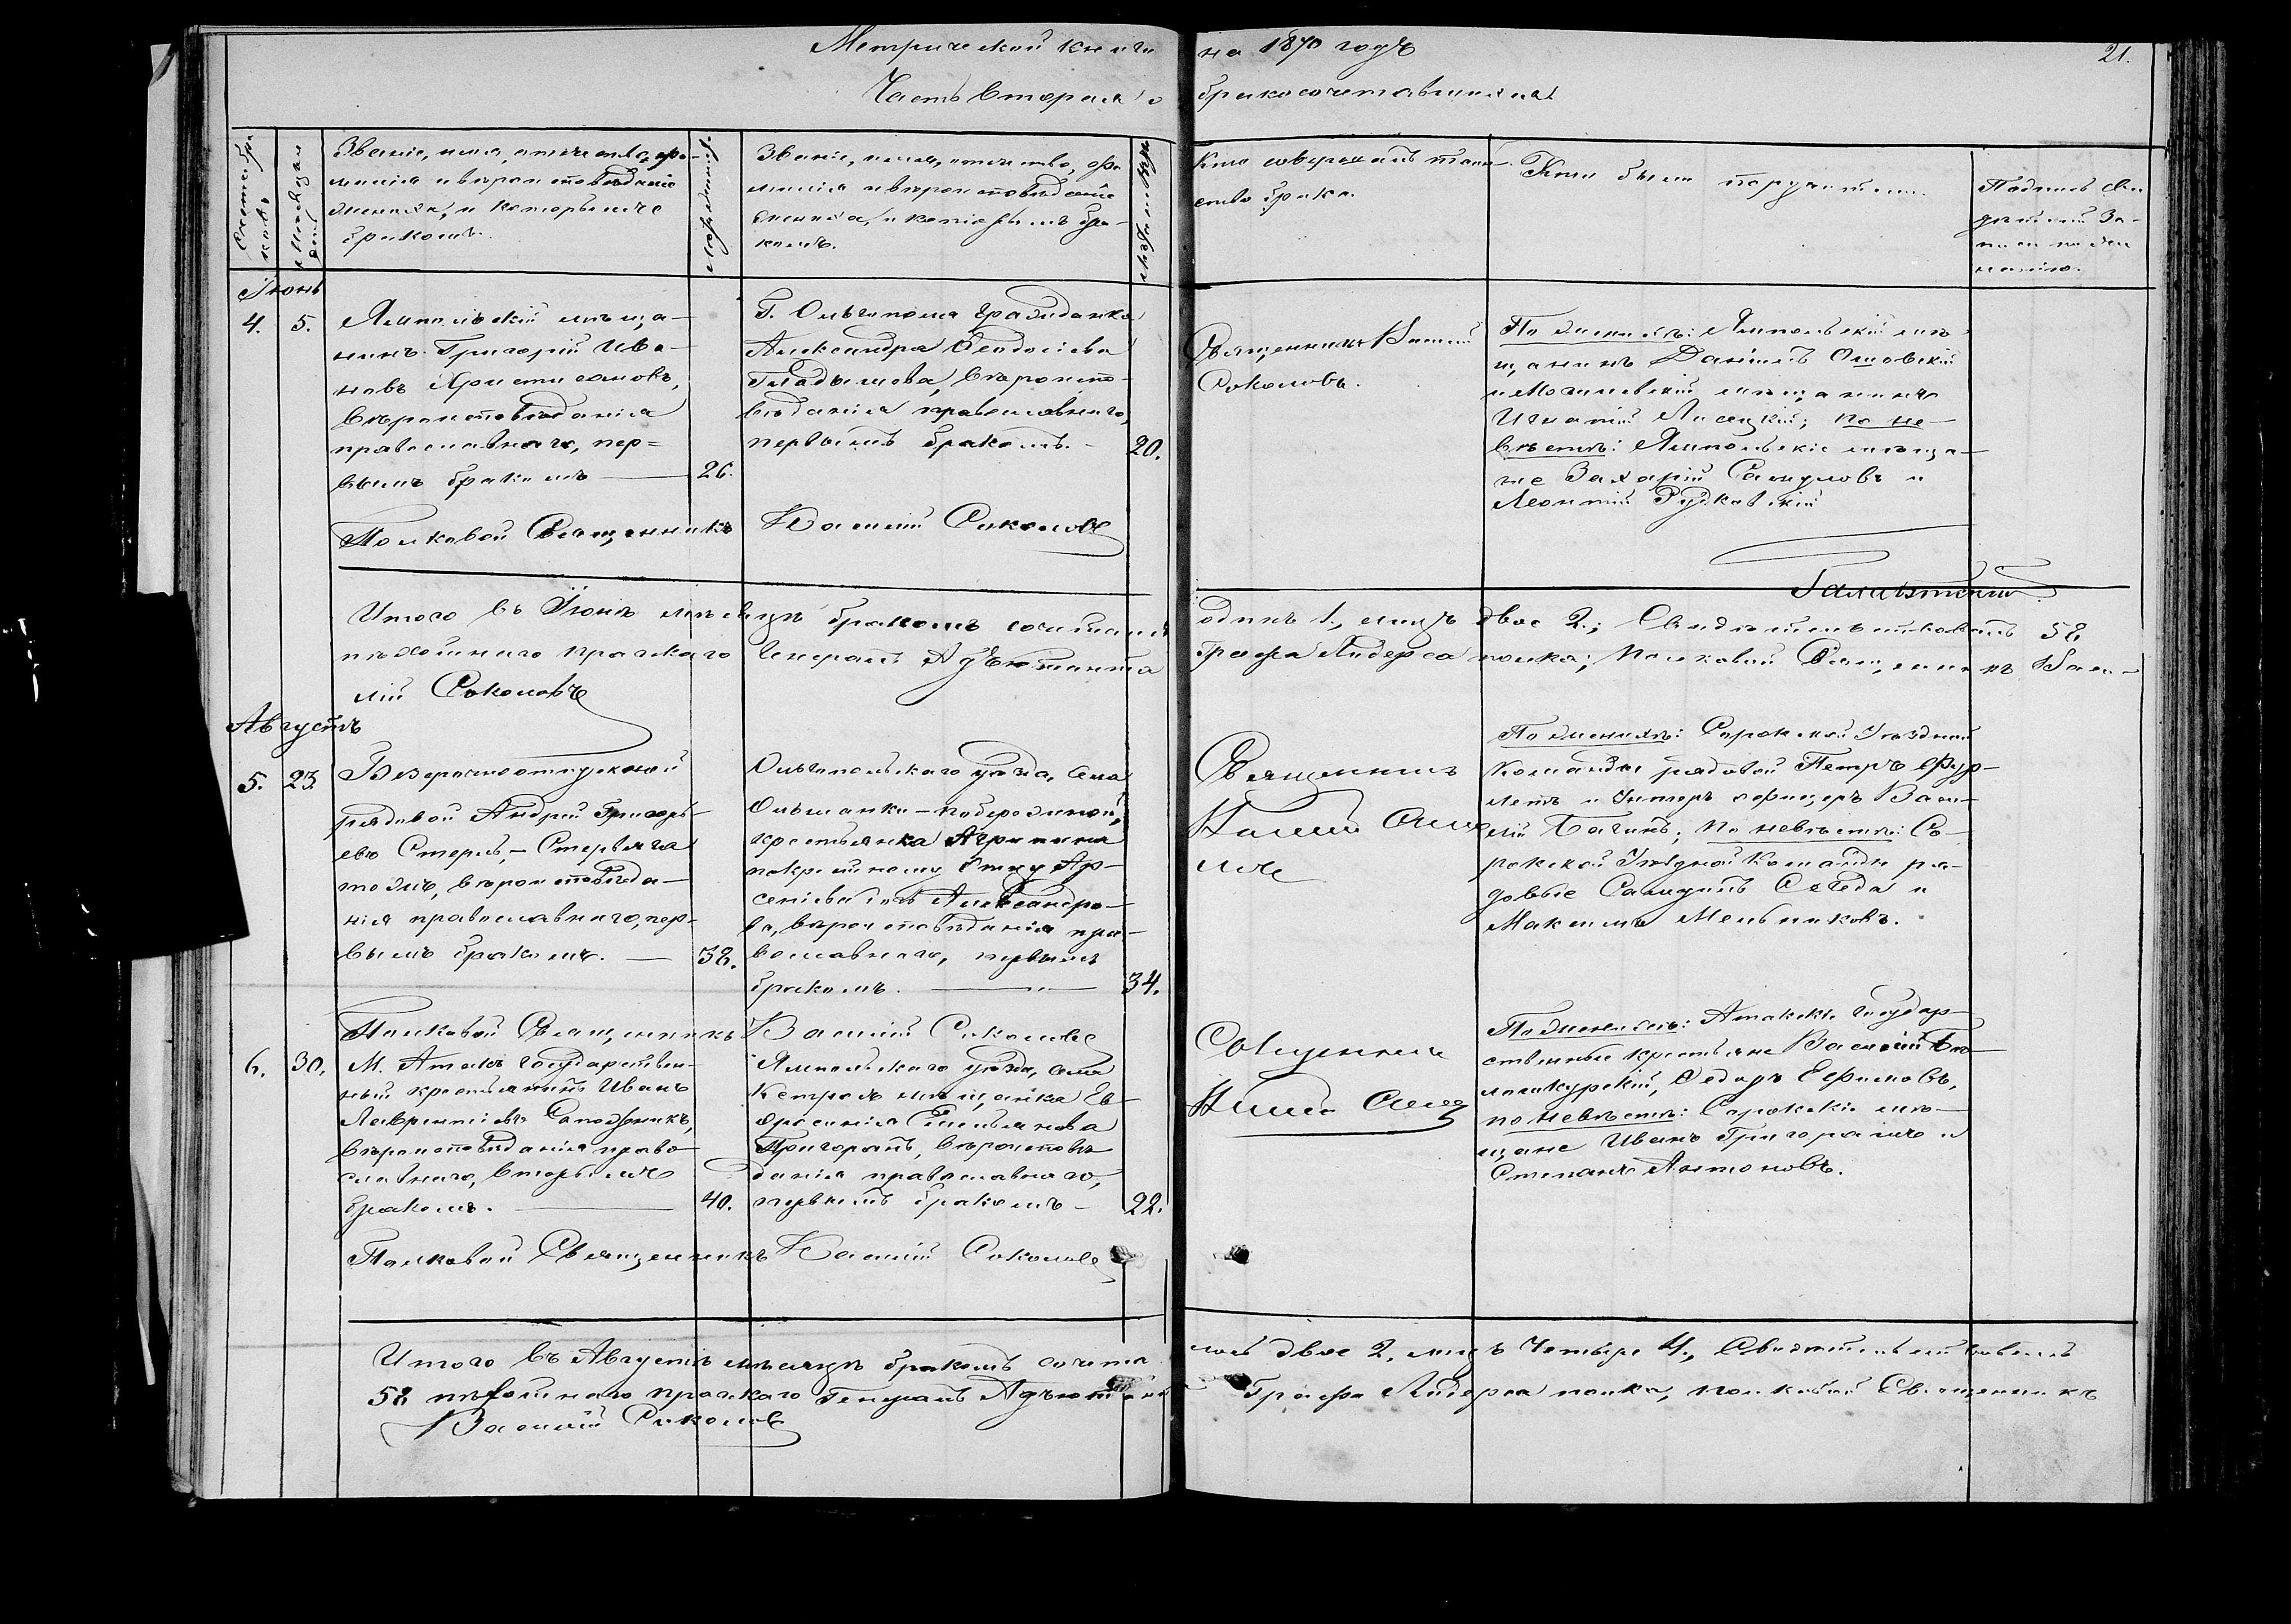 Метрической книги на 1870 годъ
21.
Часть вторая о бракосочетавшихся
Счетъ бра-
ковъ
Мѣсяцъ и
день
Званіе, имя, отчество, фа-
милія и вѣроисповѣданіе
жениха, и которымъ
бракомъ.
Лѣта жениха
Званіе, имя, отчество, фа-
милія и вѣроисповѣданіе
невѣсты, и которымъ бра-
комъ.
Лѣта невѣсты
Кто совершалъ таин-
ство брака.
Кто были поручители.
Подпись сви-
дѣтелей за-
писи по же-
ланію.
Іюнь
4. 5.
Ямпольскій мѣща-
нинъ Григорій Ива-
новъ Христисановъ,
вѣроисповѣданія
православнаго, пер-
вымъ бракомъ 26.
Г. Ольгополя гражданка
Александра Ѳеодосіева
Гладышова, вѣроиспо-
вѣданія православнаго,
первымъ бракомъ. 20.
Священникъ Василій
Соколовъ.
По женихѣ: Ямпольскій мѣ-
щанинъ Даніилъ
и Могилевскій мѣщанинъ
Игнатій Лисецкій; по не-
вѣстѣ: Ямпольскіе мѣща-
не Захарій Самуловъ и
Леонтій Рудковскій
Полковой Священникъ Василій Соколовъ
Итого въ Іюнѣ мѣсяцѣ бракомъ сочетался одинъ 1., лицъ двое 2.; Свидѣтельствовалъ 58
пѣхотнаго пражскаго Генералъ Адъютанта Графа Лидерса полка; Полковой Священникъ Васи-
лій Соколовъ
Августъ
5. 23.
Безсрочноотпускной
рядовой Андрей Григорь-
евъ Стерпъ, — Стервяга
тожъ, вѣроисповѣда-
нія православнаго, пер-
вымъ бракомъ. — 38.
Ольгопольскаго уѣзда, села
Ольшанки - побережной,
крестьянка Агрипина
по крестному отцу Ар-
сеніева Александро-
ва, вѣроисповѣданія пра-
вославнаго, первымъ
бракомъ. 34.
Священникъ
Василій
По женихѣ: Сорокской Уѣздной
Команды рядовой Петръ
и Унтеръ офицеръ Васи-
лій Багинъ; по невѣстѣ: Со-
рокской Уѣздной Команды ря-
довые Самуилъ и
Максимъ Мельниковъ.
Полковой Священникъ Василій Соколовъ
6. 30.
М. Атакъ государствен-
ный крестьянинъ Иванъ
Лаврентіевъ Сапожникъ,
вѣроисповѣданія право-
славнаго, вторымъ
бракомъ. 40.
Ямпольскаго уѣзда, села
мѣщанка Ев-
фросинія Емельянова
Григорашъ, вѣроисповѣ-
данія православнаго,
первымъ бракомъ 22.
Священникъ
По женихѣ: Атакскіе государ-
ственные крестьяне Василій
Ѳедоръ Ефимовъ,
по невѣстѣ: Сорокскіе мѣ-
щане Иванъ Григорашъ и
Степанъ Антоновъ.
Полковой Священникъ Василій Соколовъ
Итого въ Августѣ мѣсяцѣ бракомъ сочета- лось двое 2, лицъ четыре 4., Свидѣтельствовалъ
58 пѣхотнаго пражскаго Генералъ Адъютанта Графа Лидерса полка, полковой Священникъ
Василій Соколовъ